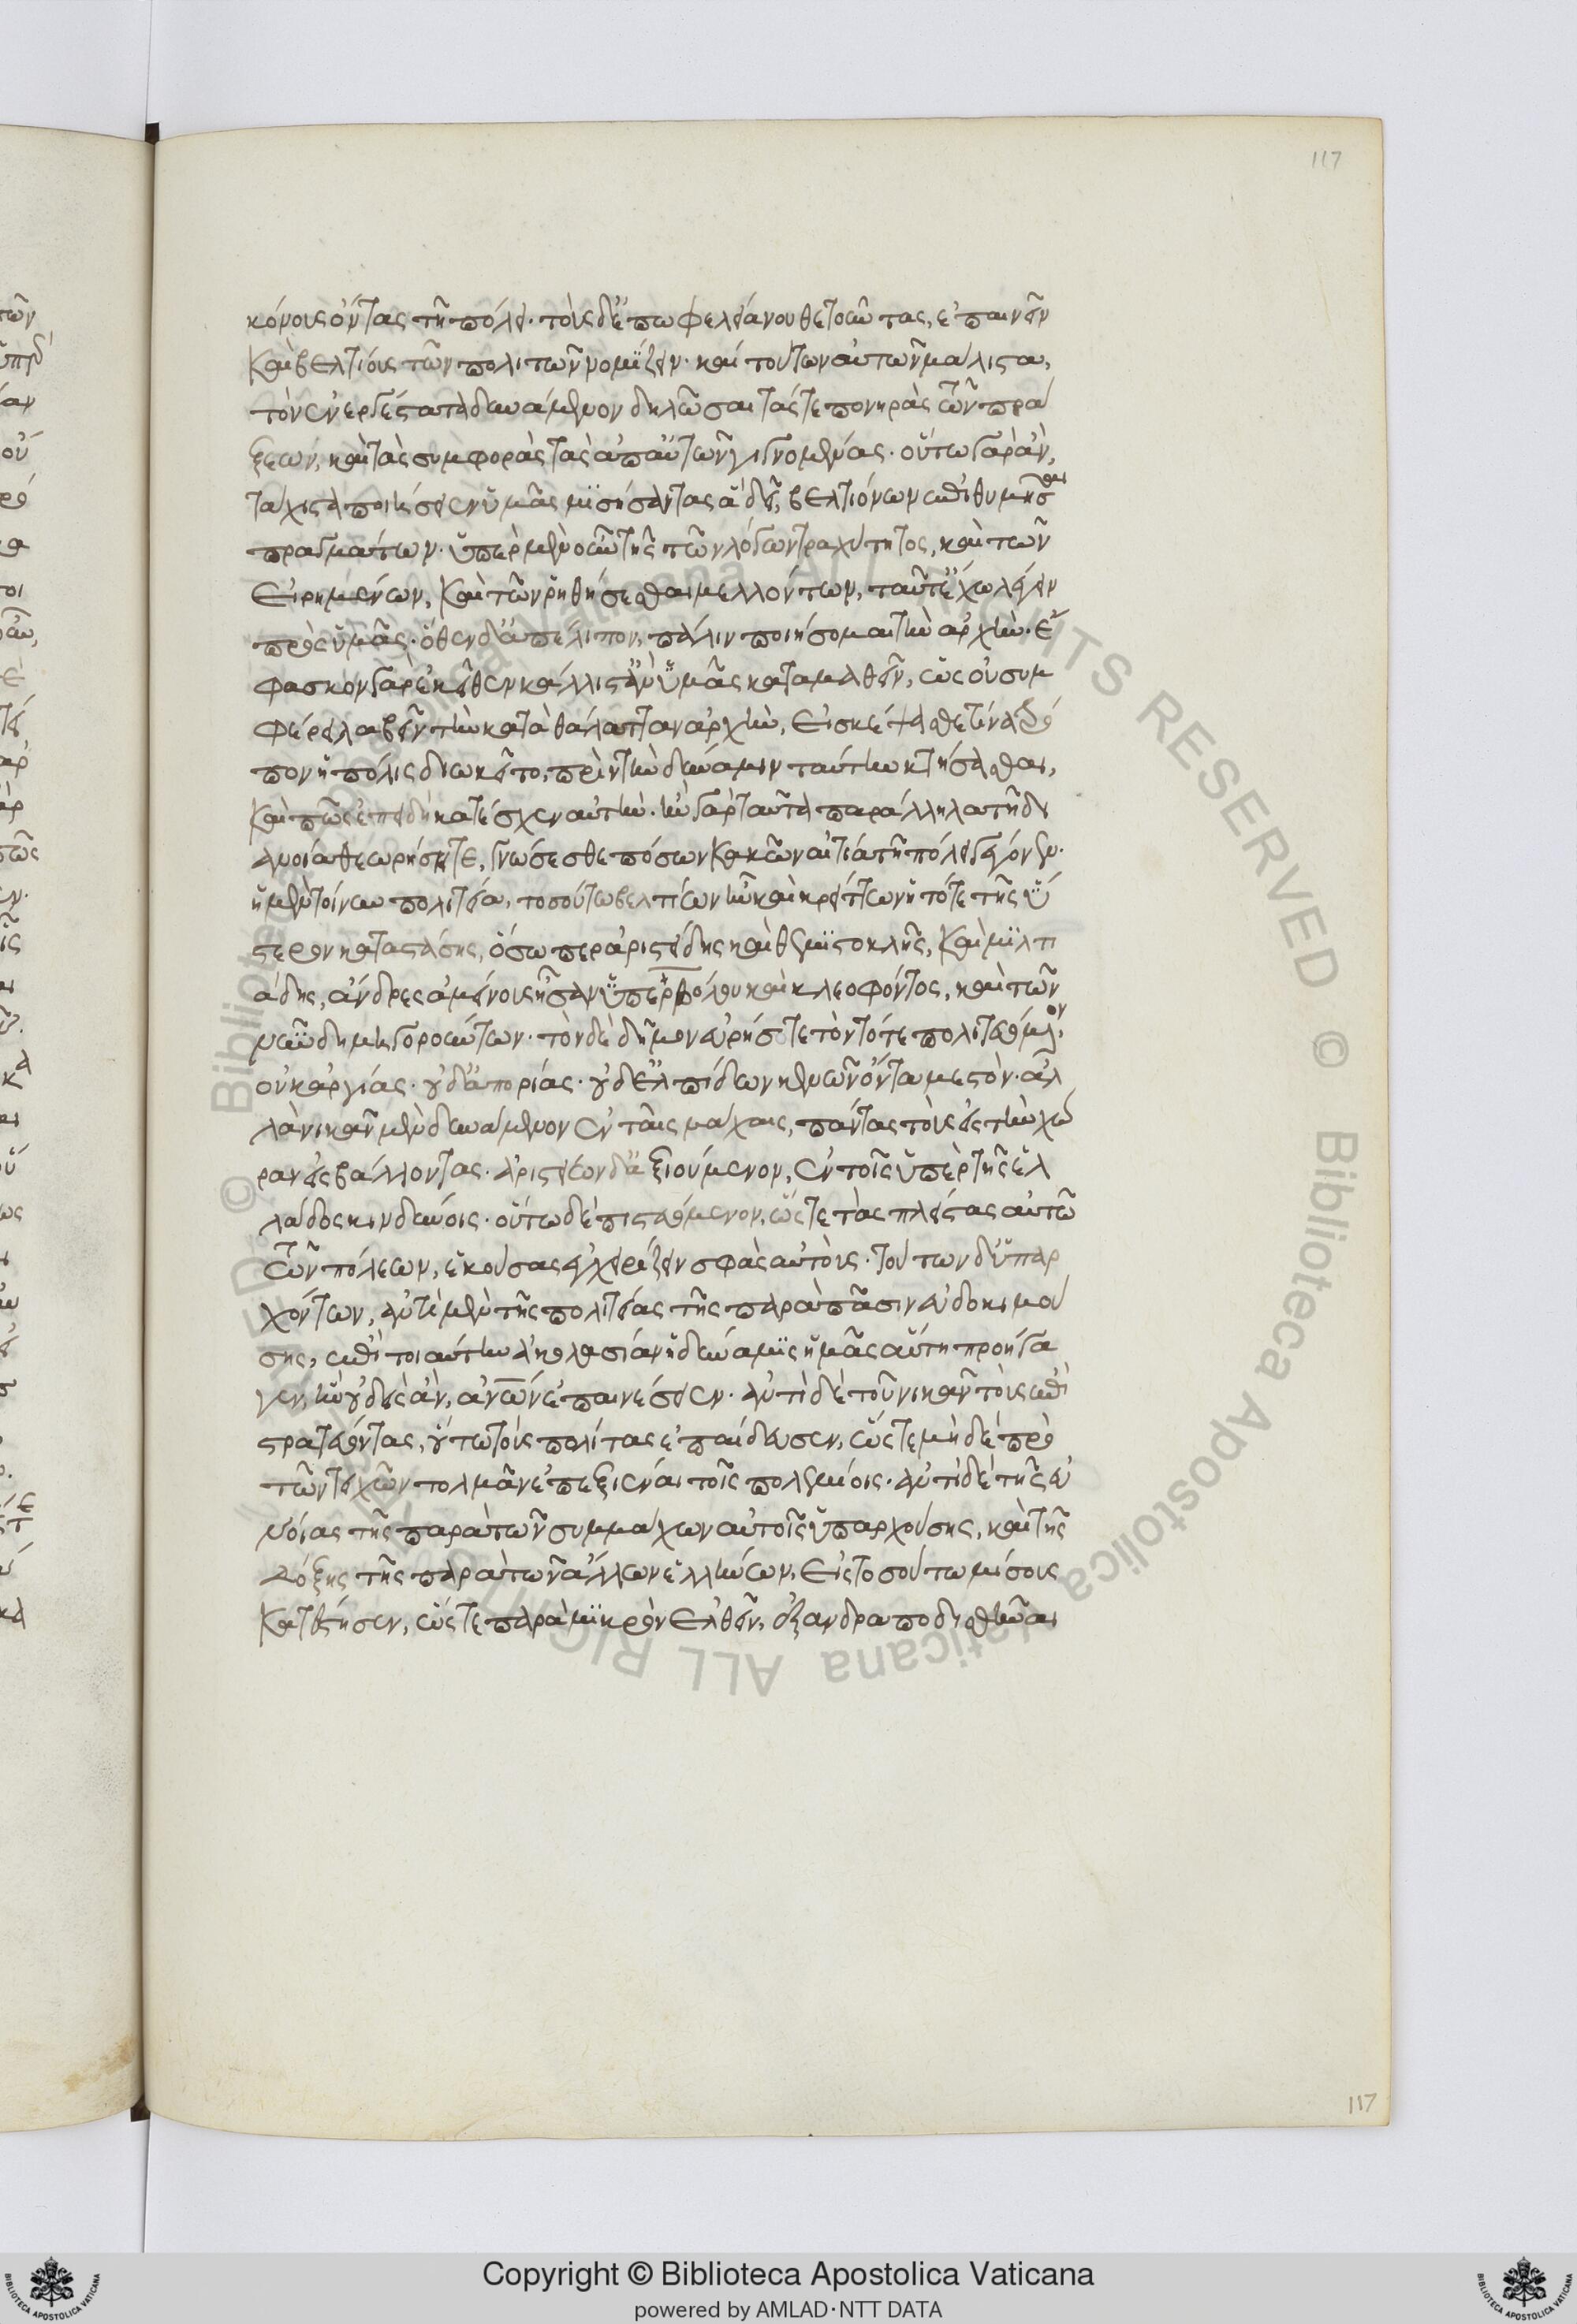 117
κόνους ὄντας τῇ πόλει· τοὺς δ' ἐπ' ὠφελείᾳ νουθετοῦντας, ἐπαινεῖν
καὶ βελτίους τῶν πολιτῶν νομίζειν· καὶ τούτων αὐτῶν μάλιστα,
τὸν ἐνεργέστατα δυνάμενον δηλῶσαι τάς τε πονηρὰς τῶν πρά
ξεων, καὶ τὰς συμφορὰς τὰς ἀπ' αὐτῶν γιγνομένας· οὕτω γὰρ ἂν,
τάχιστα ποιήσειεν ὑμᾶς μισήσαντας ἃ δεῖ, βελτιόνων ἐπιθυμῆσαι
πραγμάτων· ὑπὲρ μὲν οὖν τῆς τῶν λόγων τραχύτητος, καὶ τῶν
εἰρημένων, καὶ τῶν ῥηθήσεσθαι μελλόντων, ταῦτ' ἔχω λέγειν
πρὸς ὑμᾶς· ὅθεν δ' ἀπέλιπον, πάλιν ποιήσομαι τὴν ἀρχήν· ἔ
φασκον γὰρ ἐκεῖθεν κάλλιστ' ἂν ὑμᾶς καταμαθεῖν, ὡς οὐ συμ
φέρει λαβεῖν τὴν κατὰ θάλατταν ἀρχὴν, εἰ σκέψαισθε τίνα τρό
πον ἡ πόλις διῳκεῖτο, πρὶν τὴν δύναμιν ταύτην κτήσασθαι,
καὶ πῶς ἐπειδὴ κατέσχεν αὐτήν· ἢν γὰρ ταῦτα παρ' ἄλληλα τῇ δι
ανοίᾳ θεωρήσητε, γνώσεσθε πόσων κακῶν αἰτία τῇ πόλει γέγονεν·
ἡ μὲν τοίνυν πολιτεία, τοσούτῳ βελτίων ἦν καὶ κρείττων ἡ τότε τῆς ὕ
στερον καταστάσης, ὅσῳ περ ἀριστείδης καὶ θεμιστοκλῆς, καὶ μιλτι
άδης, ἄνδρες ἀμείνους ἦσαν ὑπερβόλου καὶ κλεοφόντος, καὶ τῶν
νῦν δημηγορούντων· τὸν δὲ δῆμον εὑρήσετε τὸν τότε πολιτευόμενον,
οὐκ ἀργίας· οὐδ' ἀπορίας· οὐδ' ἐλπίδων κενῶν ὄντα μεστόν· ἀλ
λὰ νικᾶν μὲν δυνάμενον ἐν ταῖς μάχαις, πάντας τοὺς εἰς τὴν χώ
ραν εἰσβάλλοντας· ἀριστείων δ' ἀξιούμενον, ἐν τοῖς ὑπὲρ τῆς ἑλ
λάδος κινδύνοις· οὕτω δὲ πιστευόμενον, ὥστε τὰς πλείστας αὐτῷ
τῶν πόλεων, ἑκούσας ἐγχειρίζειν σφὰς αὐτούς· τούτων δ' ὑπαρ
χόντων, ἀντὶ μὲν τῆς πολιτείας τῆς παρὰ πᾶσιν εὐδοκιμού
σης, ἐπὶ τοιαύτην ἀκολασίαν ἡ δύναμις ἡμᾶς αὕτη προήγα
γεν, ἣν οὐδεὶς ἂν, ἀνθρώπων ἐπαινέσειεν· ἀντὶ δὲ τοῦ νικᾶν τοὺς ἐπι
στρατεύοντας, οὕτω τοὺς πολίτας ἐπαίδευσεν, ὥστε μηδὲ πρὸ
τῶν τειχῶν τολμᾶν ἐπεξιέναι τοῖς πολεμίοις· ἀντὶ δὲ τῆς εὐ
νοίας τῆς παρὰ τῶν συμμάχων αὐτοῖς ὑπαρχούσης, καὶ τῆς
δόξης τῆς παρὰ τῶν ἄλλων ἑλλήνων, εἰς τοσοῦτο μίσους
κατέστησεν, ὥστε παρὰ μικρὸν ἐλθεῖν, ἐξανδραποδισθῆναι
117
© Biblioteca Apostolica Vaticana ALL RIGHTS RESERVED
Copyright © Biblioteca Apostolica Vaticana
powered by AMLAD·NTT DATA